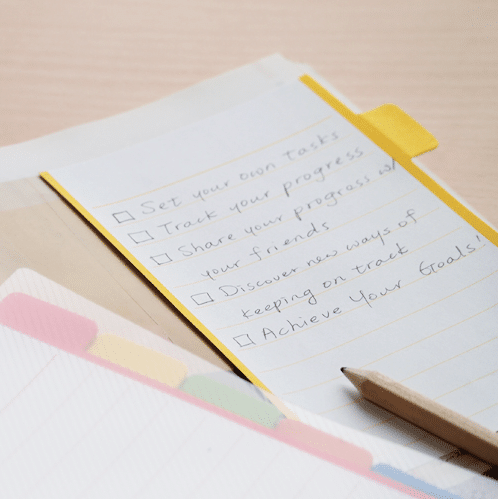 ☐ Set your own tasks
☐ Track your progress
☐ Share your progress w/
your friends
☐ Discover new ways of
keeping on track
☐ Achieve Your Goals!